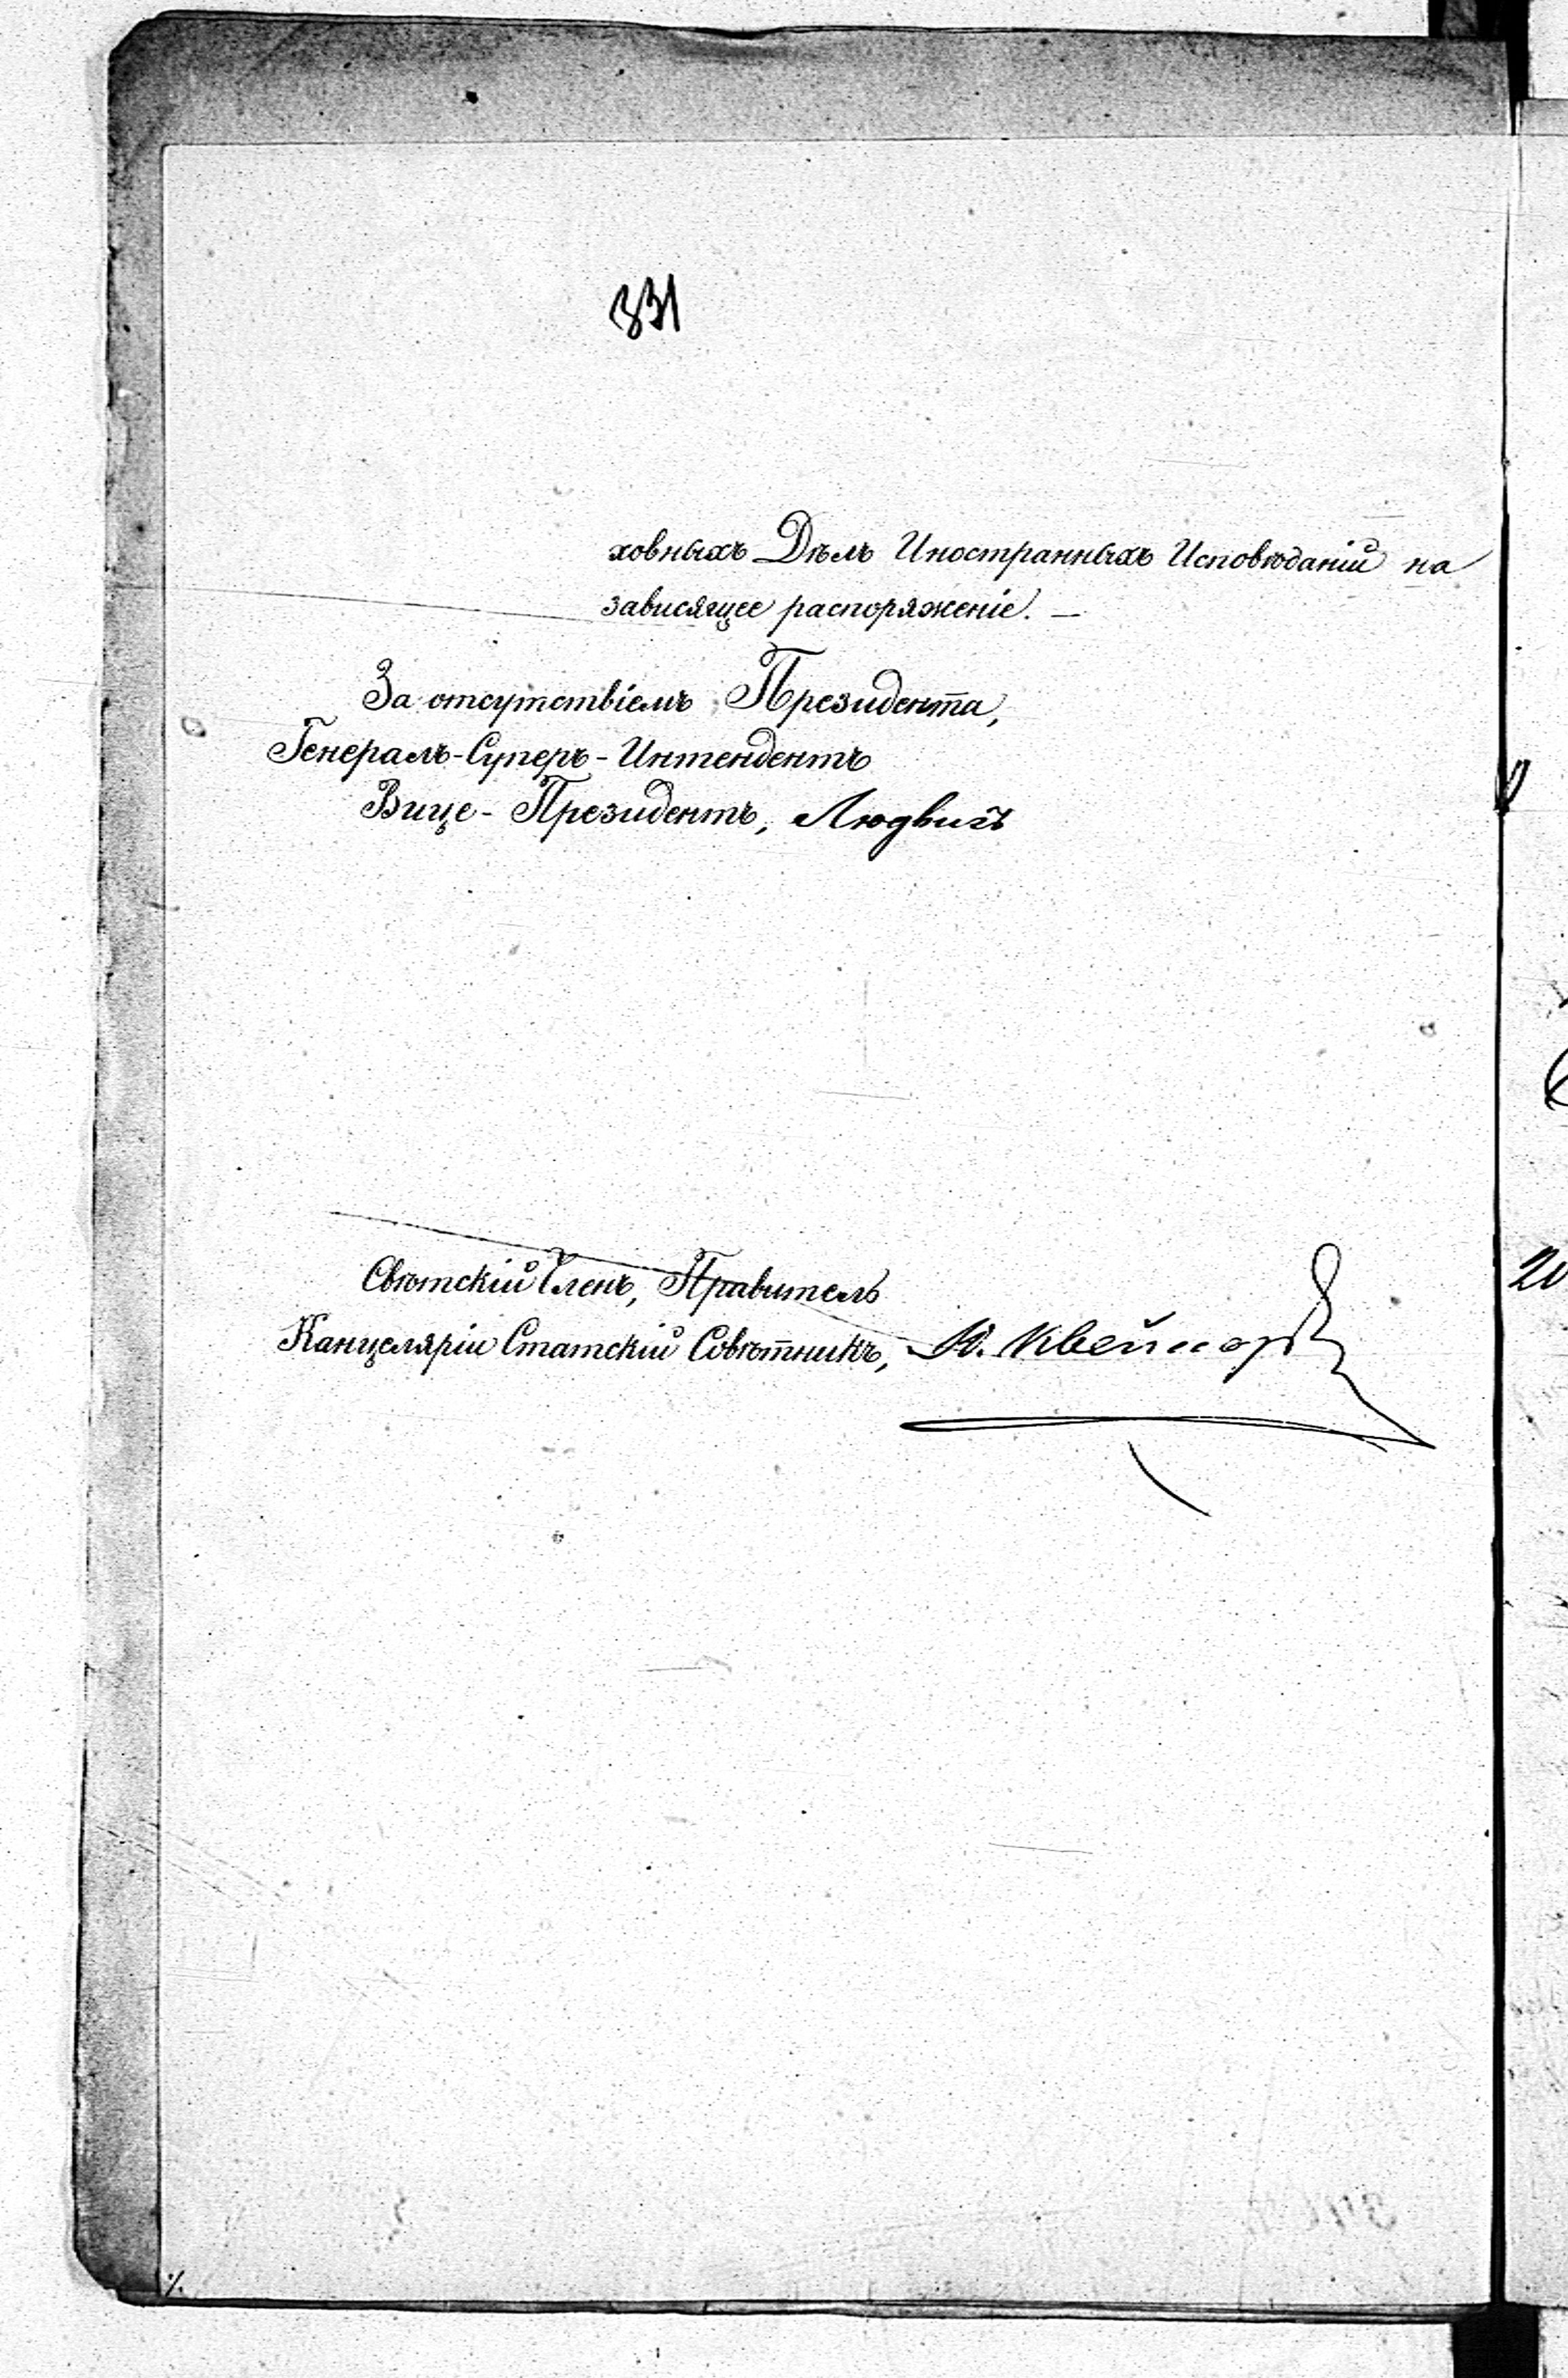 331
ховныхъ Дѣлъ Иностранныхъ Исповѣданій на
зависящее распоряженіе. —
За отсутствіемъ Президента,
Генералъ-Суперъ-Интендентъ
Вице-Президентъ, Людвигъ
Свѣтскій Членъ, Правитель
Канцеляріи Статскій Совѣтникъ,